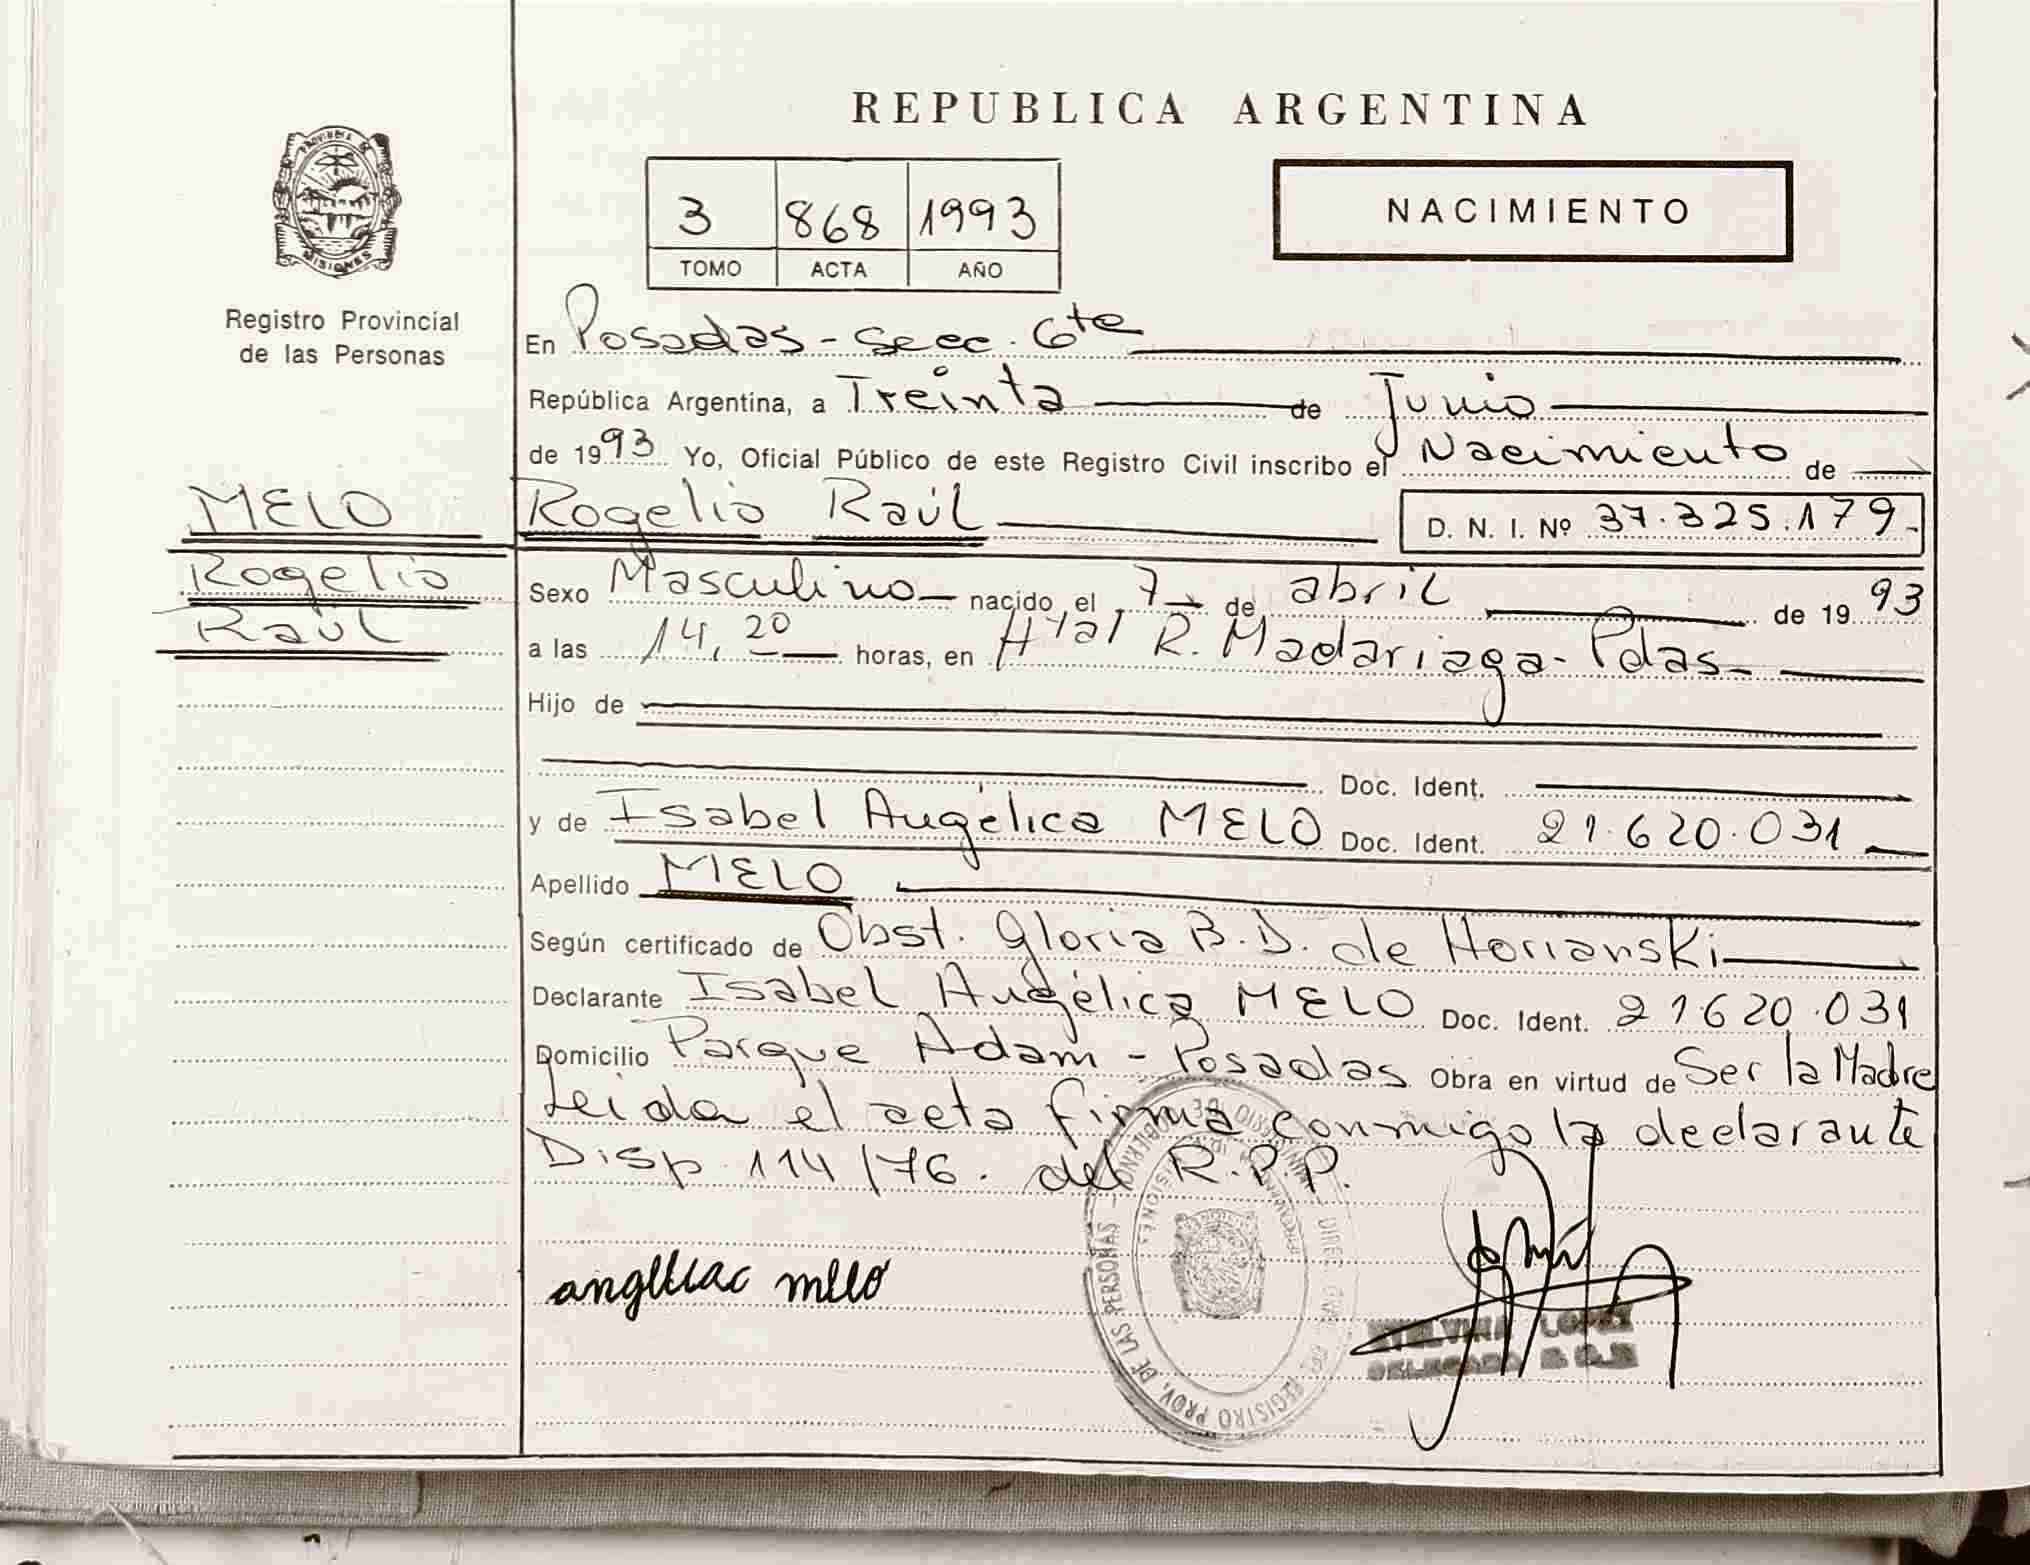 REPUBLICA ARGENTINA
PROVINCIA DE
MISIONES
Registro Provincial
de las Personas
3 868 1993
TOMO ACTA AÑO
NACIMIENTO
En Posadas - Secc. 6ta
República Argentina, a Treinta de Junio
de 1993 Yo, Oficial Público de este Registro Civil inscribo el Nacimiento de
MELO
Rogelio Raúl D. N. I. Nº 37.325.179.-
Rogelio
Raúl
Sexo Masculino nacido el 7 de abril de 1993
a las 14,20 horas, en Htal R. Madariaga - Pdas
Hijo de
Doc. Ident.
y de Isabel Angélica MELO Doc. Ident. 21.620.031
Apellido MELO
Según certificado de Obst. Gloria B. D. de Horianski
Declarante Isabel Angélica MELO Doc. Ident. 21620.031
Domicilio Parque Adam - Posadas Obra en virtud de Ser la Madre
Leida el acta firma conmigo la declarante
Disp. 114/76. del R.P.P.
REGISTRO PROV. DE LAS PERSONAS
LOPEZ
DELEGADO